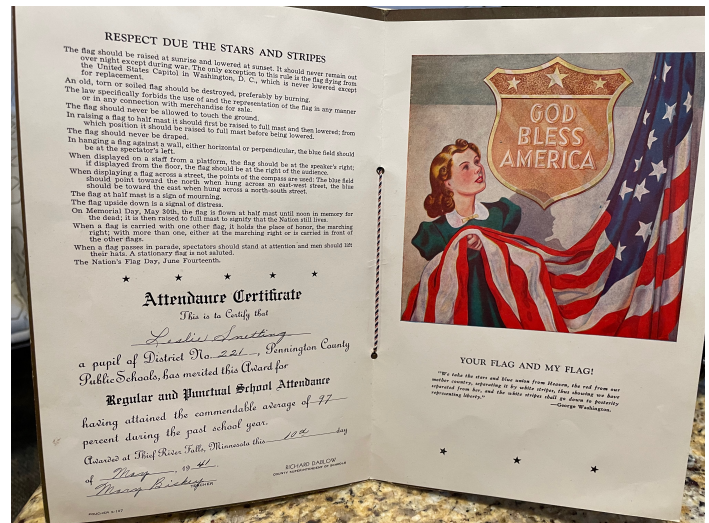 RESPECT DUE THE STARS AND STRIPES
The flag should be raised at sunrise and lowered at sunset. It should never remain out
over night except during war. The only exception to this rule is the flag flying from
the United States Capitol in Washington, D. C., which is never lowered except
for replacement.
An old, torn or soiled flag should be destroyed, preferably by burning.
The law specifically forbids the use of and the representation of the flag in any manner
or in any connection with merchandise for sale.
The flag should never be allowed to touch the ground.
In raising a flag to half mast it should first be raised to full mast and then lowered; from
which position it should be raised to full mast before being lowered.
The flag should never be draped.
In hanging a flag against a wall, either horizontal or perpendicular, the blue field should
be at the spectator's left.
When displayed on a staff from a platform, the flag should be at the speaker's right;
if displayed from the floor, the flag should be at the right of the audience.
When displaying a flag across a street, the points of the compass are used: The blue field
should point toward the north when hung across an east-west street, the blue
should be toward the east when hung across a north-south street.
The flag at half mast is a sign of mourning.
The flag upside down is a signal of distress.
On Memorial Day, May 30th, the flag is flown at half mast until noon in memory for
the dead; it is then raised to full mast to signify that the Nation still lives.
When a flag is carried with one other flag, it holds the place of honor, the marching
right; with more than one, either at the marching right or is carried in front of
the other flags.
When a flag passes in parade, spectators should stand at attention and men should lift
their hats. A stationary flag is not saluted.
The Nation's Flag Day, June Fourteenth.
Attendance Certificate
This is to Certify that
Leslie
a pupil of District No. 221, Pennington County
Public Schools, has merited this Award for
Regular and Punctual School Attendance
having attained the commendable average of 97
percent during the past school year.
Awarded at Thief River Falls, Minnesota this 10th day
of May, 1941
RICHARD DABLOW
COUNTY SUPERINTENDENT OF SCHOOLS
Mary
TEACHER
GOD
BLESS
AMERICA
YOUR FLAG AND MY FLAG!
"We take the stars and blue union from Heaven, the red from our
mother country, separating it by white stripes, thus showing we have
separated from her, and the white stripes shall go down to posterity
representing liberty."
—George Washington.